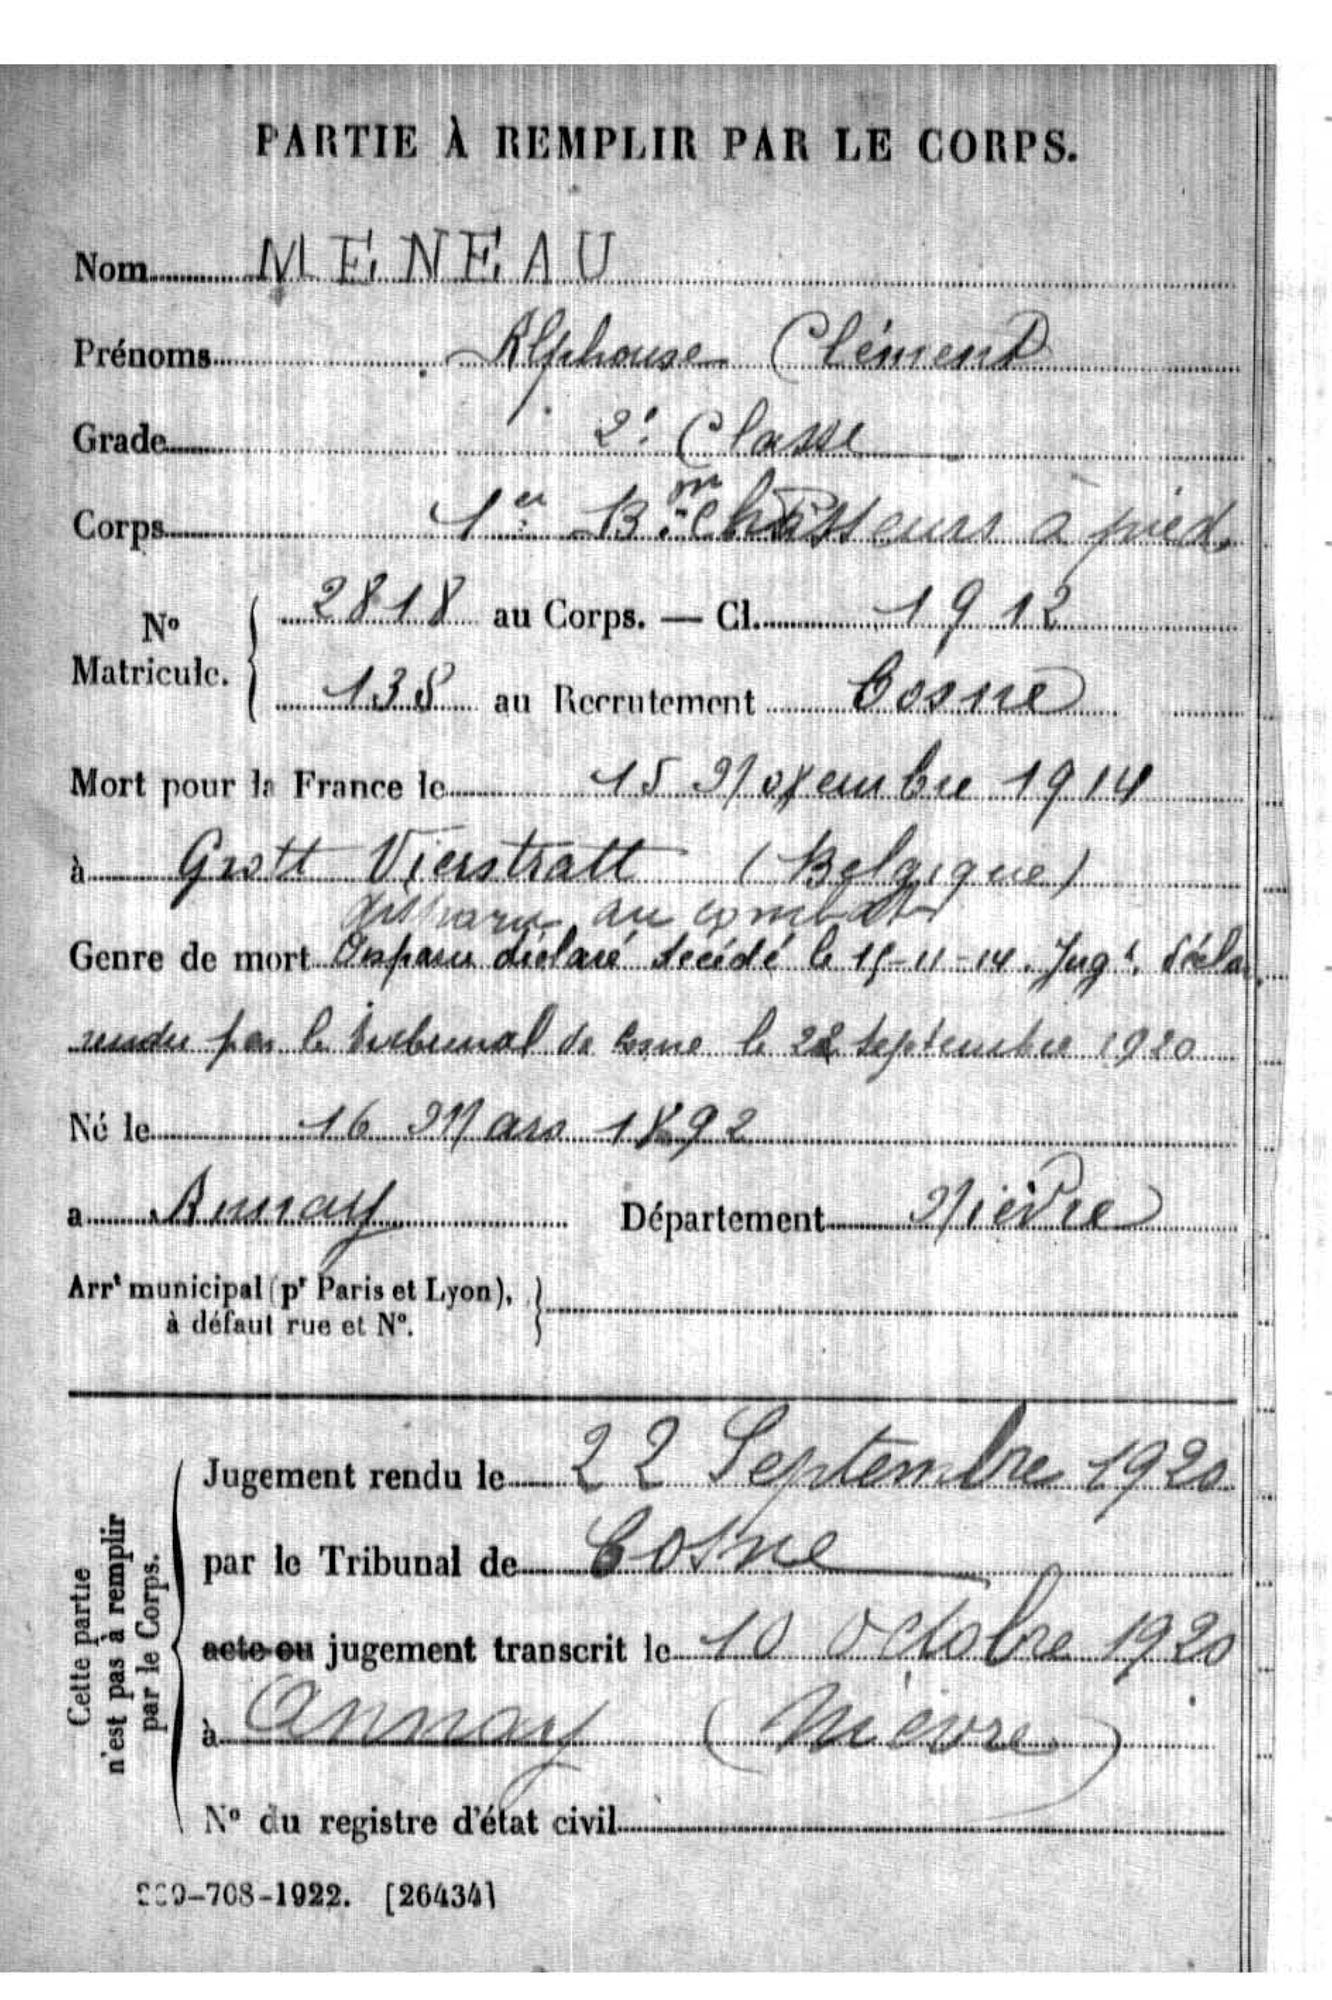 PARTIE À REMPLIR PAR LE CORPS.
Nom MENEAU
Prénoms Alphonse Clément
Grade 2e Classe
Corps 1er Bon Chasseurs à pied
No Matricule. { 2818 au Corps. — Cl. 1912
138 au Recrutement Cosne
Mort pour la France le 15 Novembre 1914
à Grott Vierstratt (Belgique)
disparu au combat
Genre de mort Disparu déclaré décédé le 15-11-14. Jugt. décla
rendu par le tribunal de Cosne le 22 septembre 1920
Né le 16 Mars 1892
a Annay Département Nièvre
Arrt municipal (pr Paris et Lyon), à défaut rue et No. }
Cette partie n'est pas à remplir par le Corps.
Jugement rendu le 22 Septembre 1920
par le Tribunal de Cosne
acte ou jugement transcrit le 10 octobre 1920
à Annay (Nièvre)
No du registre d'état civil
-708-1922. [26434]